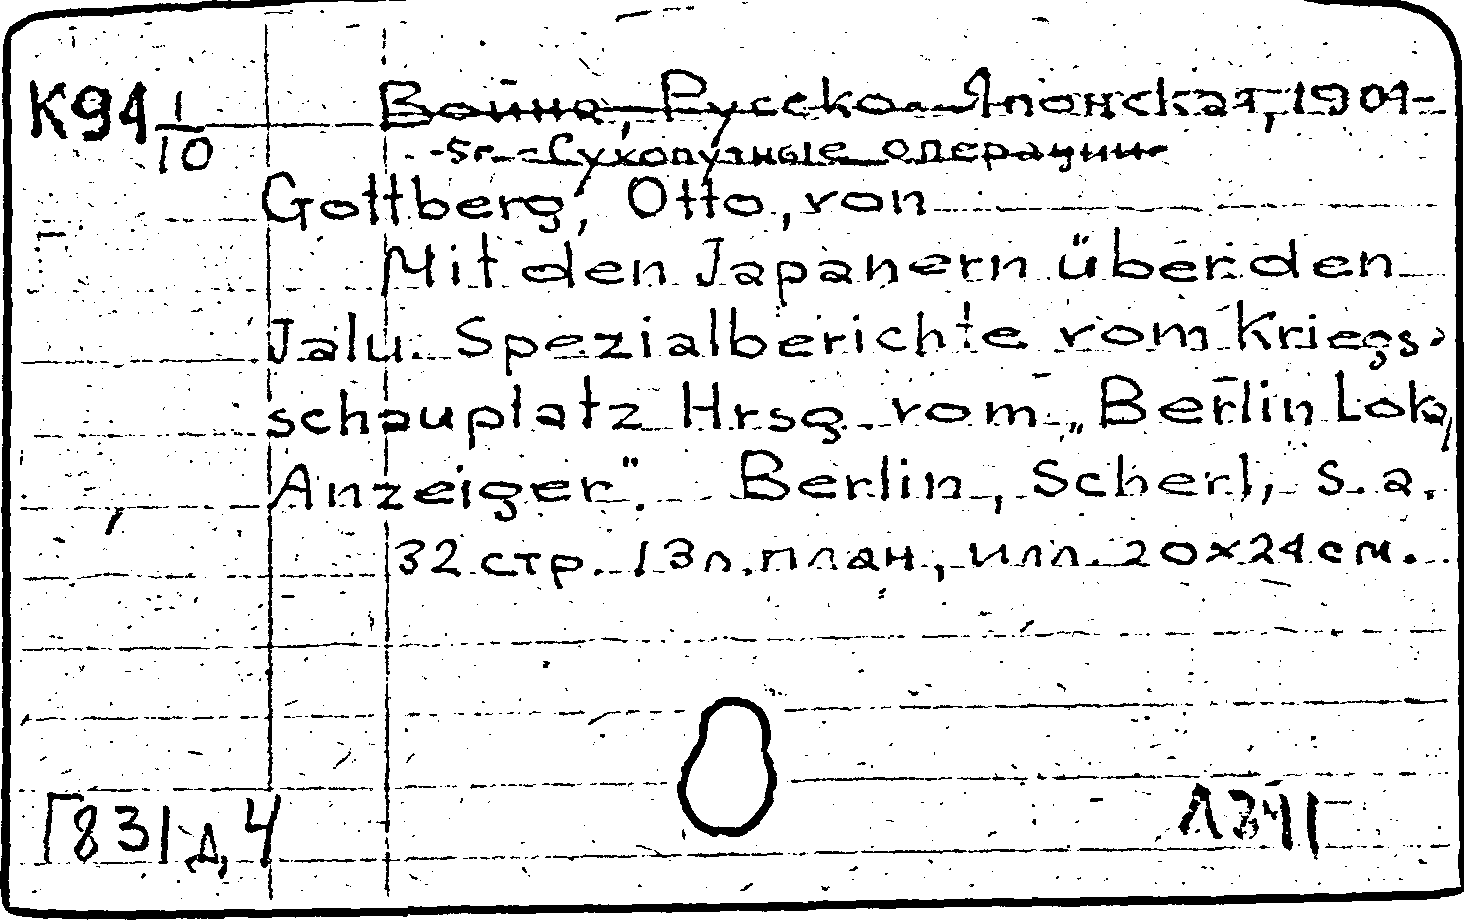 К94 1/10
Война, Русско-Японская, 1904-
-5г. - Сухопутные операции
Gottberg, Otto, von
Mit den Japanern über den
Jalu. Spezialberichte vom Kriegs-
schauplatz Hrsg. vom „Berlin Lok,
Anzeiger". Berlin, Scherl, s.a.
32 стр. 13 л. план, илл. 20x24 см.
Г831 д, 4